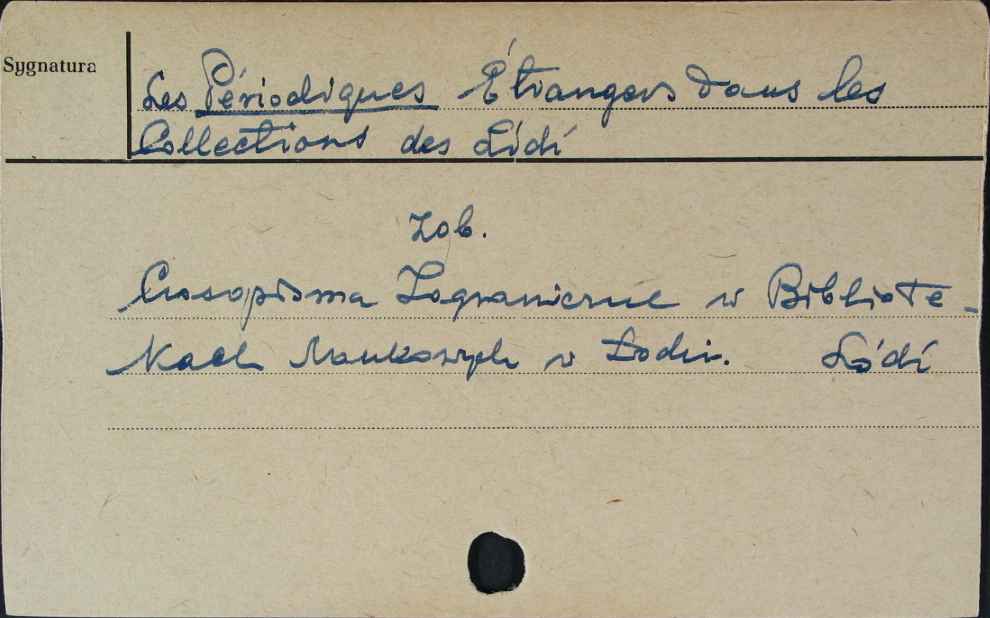 Sygnatura
Les Périodiques Étrangers dans les
Collections des Łódź
Zob.
Czasopisma Zagraniczne w Bibliote-
kach Naukowych w Łodzi. Łódź